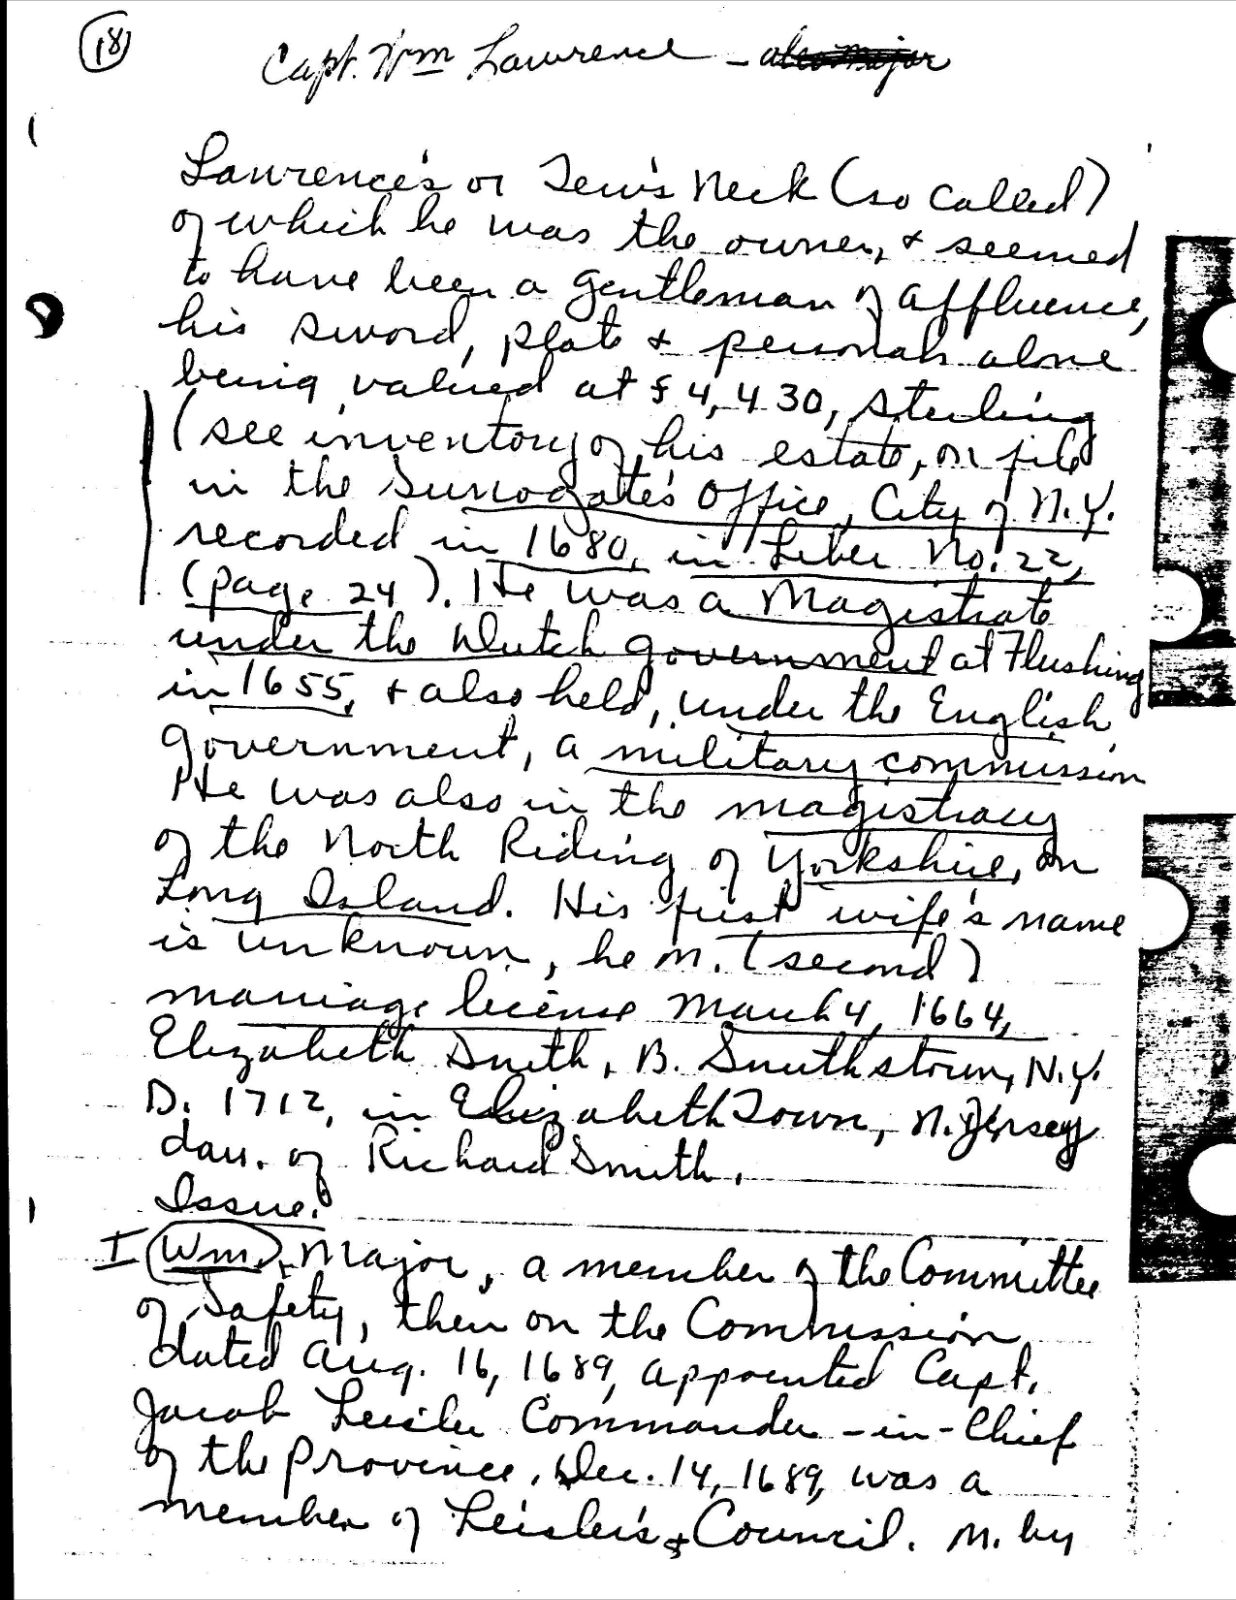 18
Capt. Wm Lawrence - also Major
Lawrence's or Tew's Neck (so called)
of which he was the owner, & seemed
to have been a gentleman of affluence,
his sword, plate & personals alone
being valued at £4,430, sterling
(see inventory of his estate, on file
in the Surrogate's Office, City of N.Y.
recorded in 1680, in Liber No. 22,
(page 24). He was a Magistrate
under the Dutch government at Flushing
in 1655, & also held, under the English
government, a military commission
He was also in the magistracy
of the North Riding of Yorkshire, on
Long Island. His first wife's name
is unknown, he m. (second)
marriage license March 4, 1664,
Elizabeth Smith, B. Smithstown, N.Y.
D. 1712, in Elizabeth Town, N. Jersey
dau. of Richard Smith.
Issue:
I Wm. Major, a member of the Committee
of Safety, then on the Commission
dated Aug. 16, 1689, appointed Capt.
Jacob Leisler Commander-in-Chief
of the Province. Dec. 14, 1689, was a
member of Leisler's Council. M. by